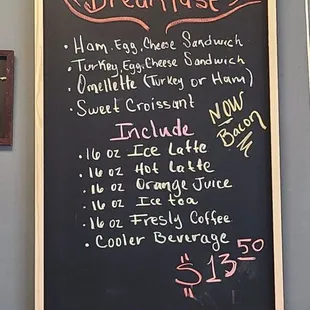 Breakfast
• Ham, Egg, Cheese Sandwich
• Turkey, Egg, Cheese Sandwich
• Omellette (Turkey or Ham)
• Sweet Croissant
NOW
Bacon
Include
• 16 oz Ice Latte
• 16 oz Hot Latte
• 16 oz Orange Juice
• 16 oz Ice tea
• 16 oz Fresly Coffee
• Cooler Beverage
$13.50